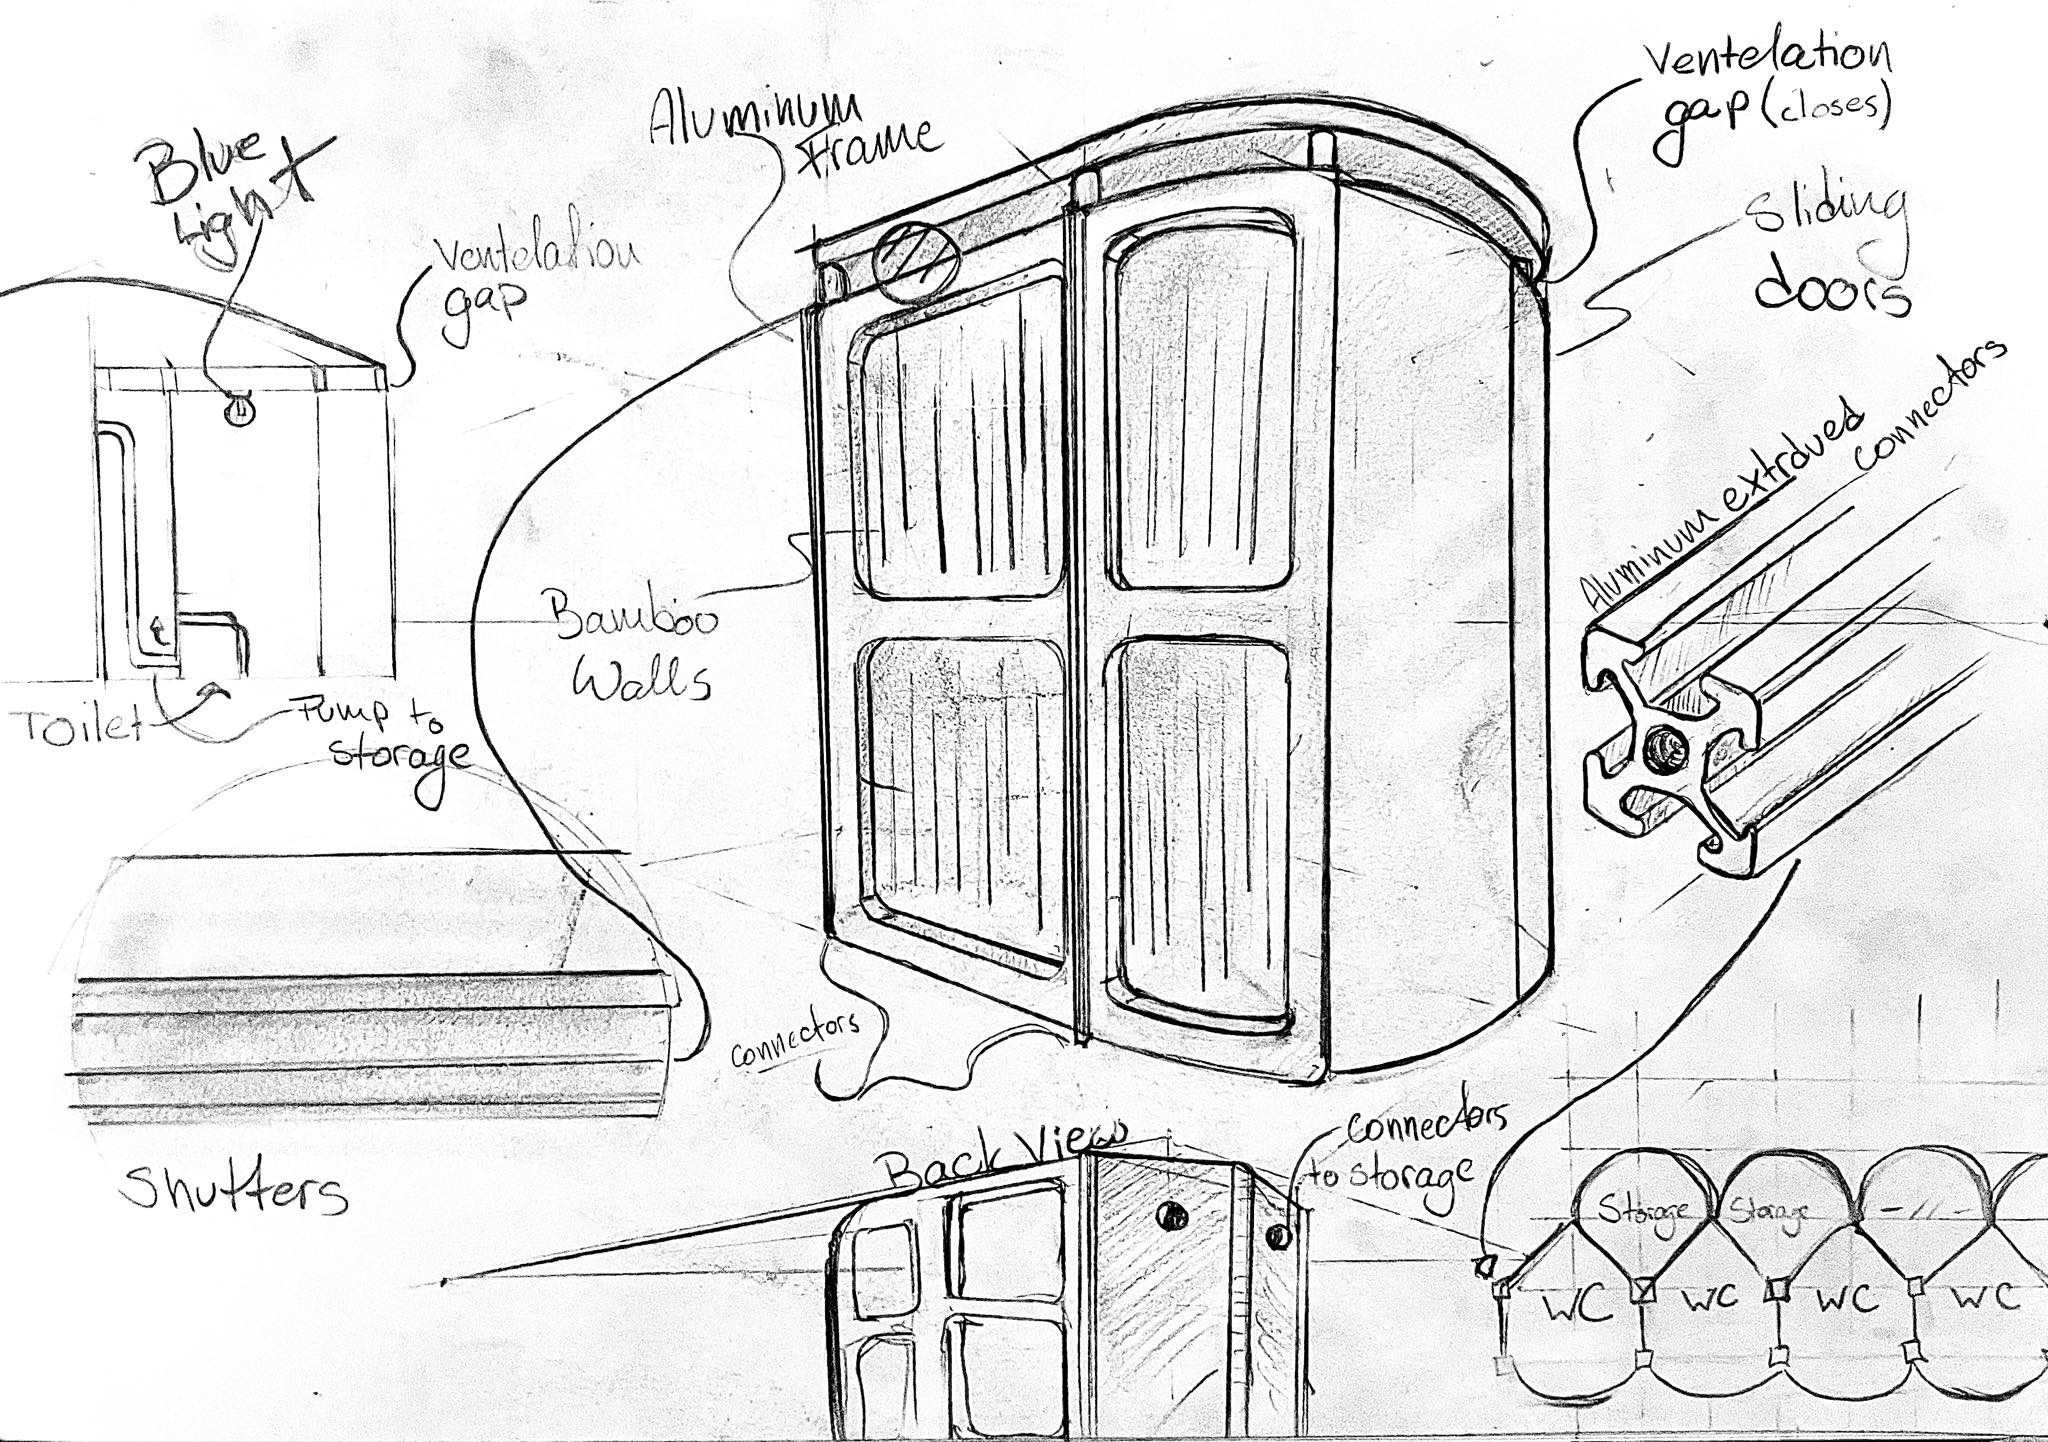 Blue
Light
Ventelation
gap
Aluminum
Frame
Ventelation
gap (closes)
Sliding
doors
Aluminum extrdued
connectors
Bamboo
Walls
Toilet
Pump to
storage
Shutters
connectors
Back View
connectors
to storage
Storage
Storage
-//-
WC
WC
WC
WC